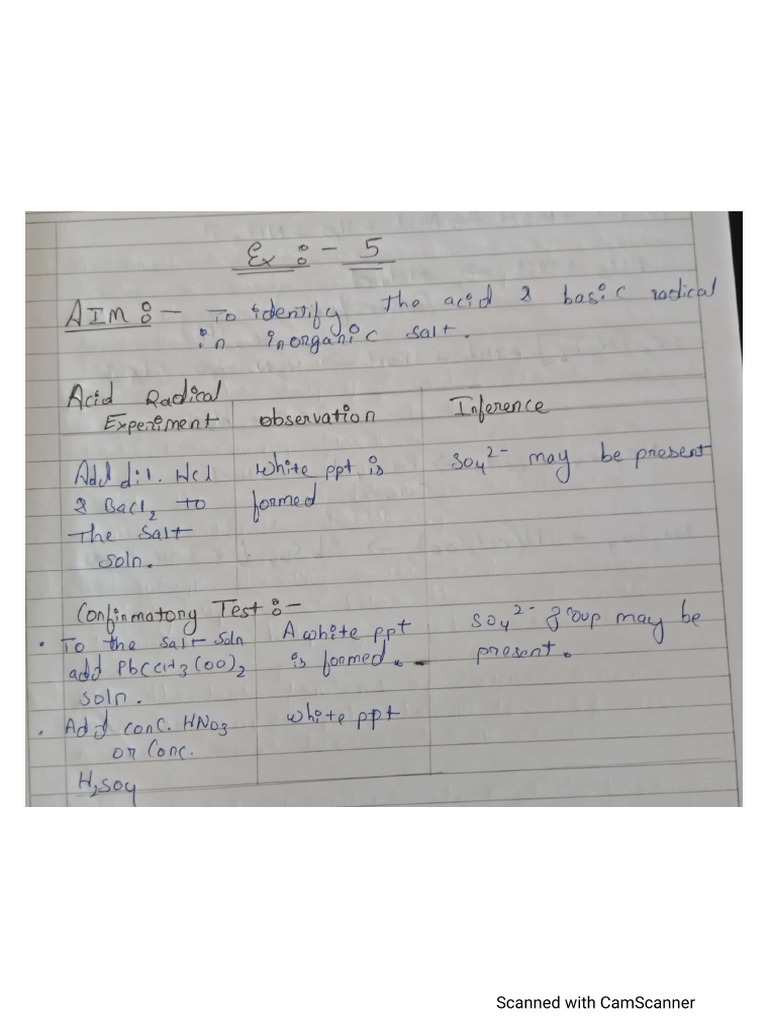 Ex :- 5
AIM :- To identify the acid & basic radical
in inorganic salt.
Acid Radical
Experiment observation Inference
Add dil. Hcl White ppt is SO4²⁻ may be present
& BaCl₂ to formed
the salt
soln.
Confirmatory Test :-
• To the salt soln A white ppt SO4²⁻ group may be
add Pb(CH3COO)₂ is formed. present.
soln.
• Add conc. HNO3 white ppt
or Conc.
H₂SO4
Scanned with CamScanner